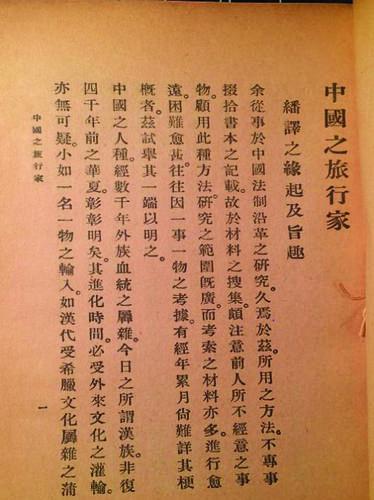 中國之旅行家
繙譯之緣起及旨趣
余從事於中國法制沿革之研究。久焉於茲。所用之方法。不專事
掇拾書本之記載。故於材料之搜集。頗注意前人所不經意之事
物。顧用此種方法。研究之範圍旣廣。而考索之材料亦多。進行愈
遠。困難愈甚。往往因一事一物之考據。有經年累月尙難詳其梗
概者。茲試舉其一端以明之。
中國之人種。經數千年外族血統之羼雜。今日之所謂漢族。非復
四千年前之華夏。彰彰明矣。其進化時間。必受外來文化之灌輸。
亦無可疑。小如一名一物之輸入。如漢代受希臘文化羼雜之蒲
中國之旅行家
一